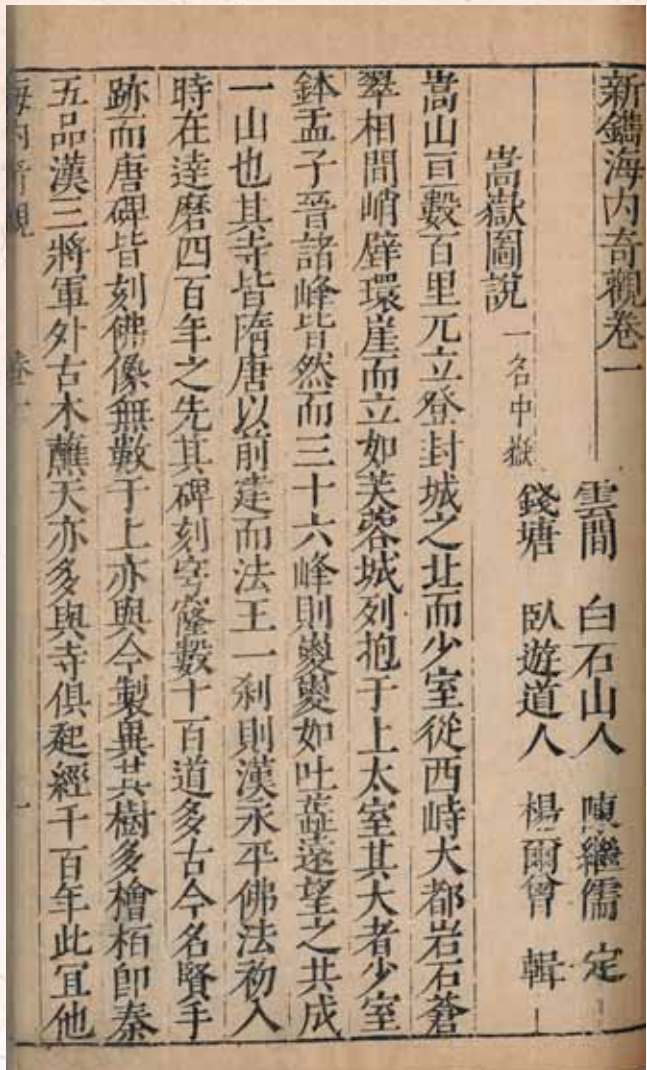 新鐫海内奇觀卷一
雲間 白石山人 陳繼儒 定
錢塘 臥遊道人 楊爾曾 輯
嵩嶽圖說 一名中嶽
嵩山亘數百里元立登封城之北而少室從西峙大都岩石蒼
翠相間峭壁環崖而立如芙蓉城列抱于上太室其大者少室
鉢盂子晉諸峰皆然而三十六峰則嶷嶷如吐蕋遠望之共成
一山也其寺皆隋唐以前建而法王一刹則漢永平佛法初入
時在達磨四百年之先其碑刻穹窿數十百道多古今名賢手
跡而唐碑皆刻佛像無數于上亦與今製異其樹多檜栢即秦
五品漢三將軍外古木蘸天亦多與寺俱起經千百年此宜他
海内奇觀 卷一 一